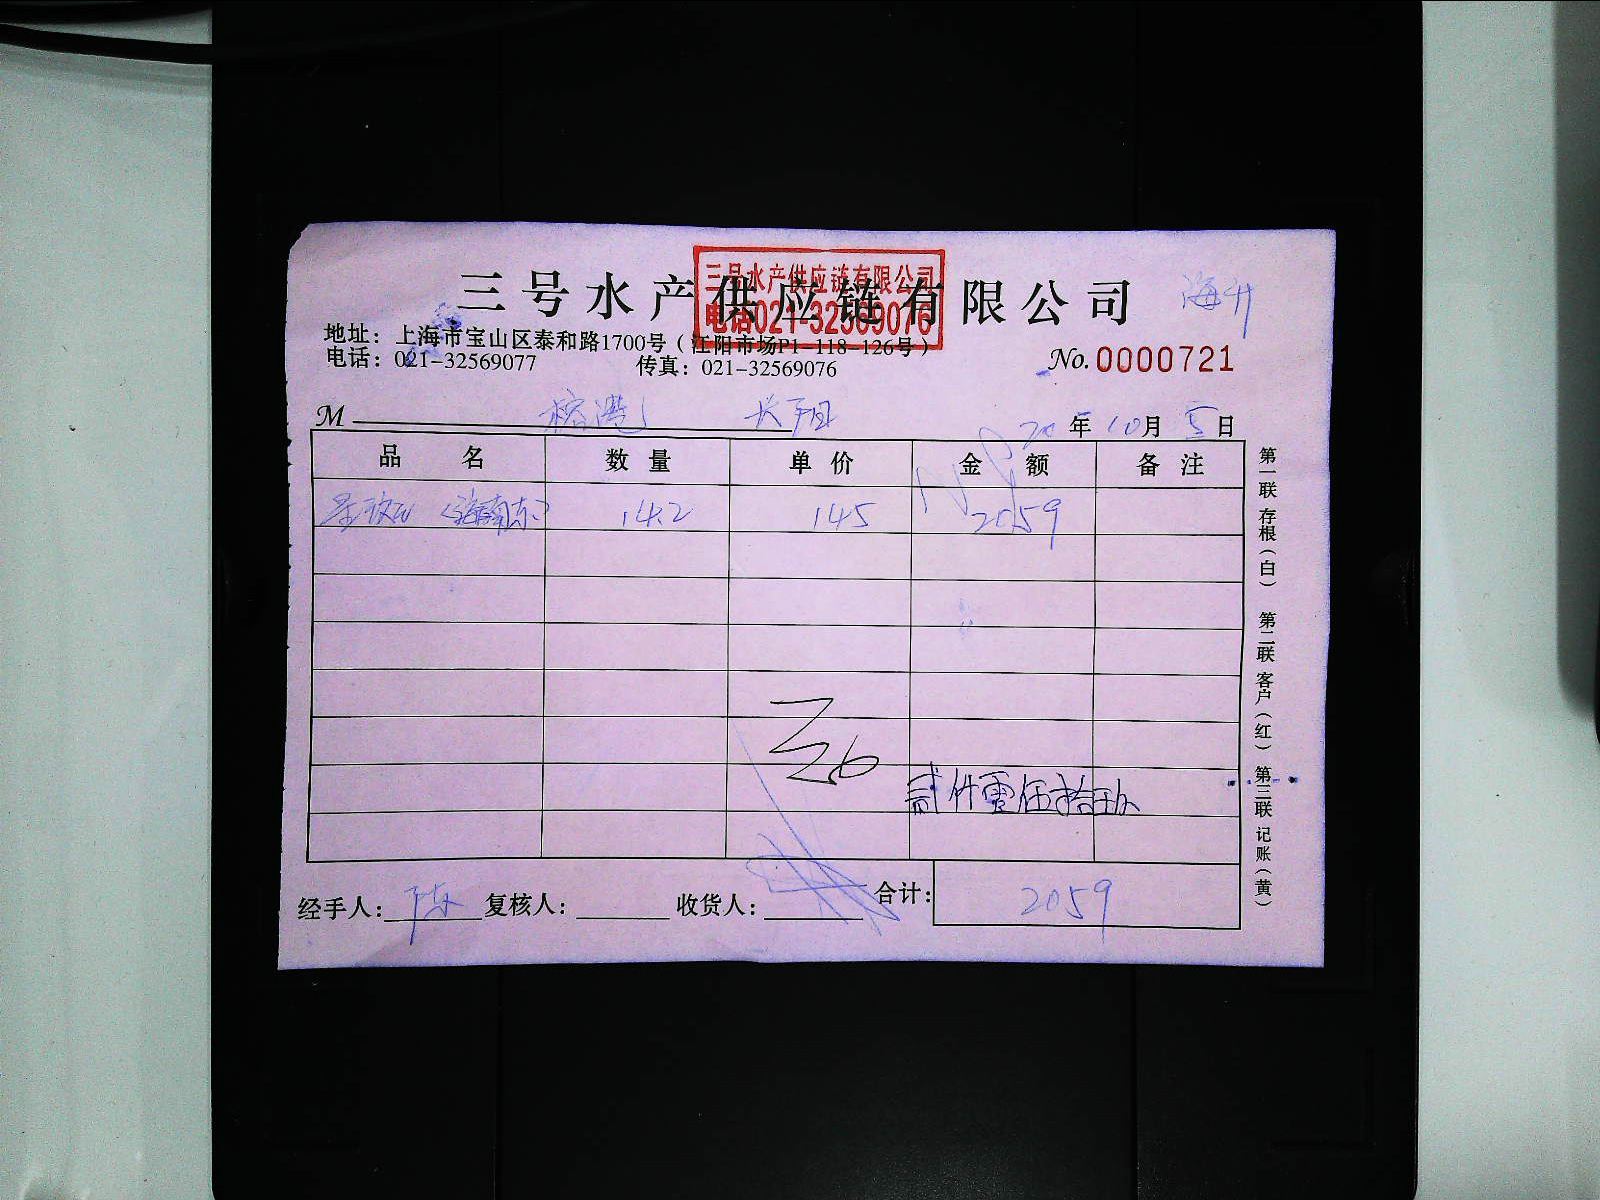 三号水产供应链有限公司
三号水产供应链有限公司
电话021-32569076
地址：上海市宝山区泰和路1700号（江阳市场P1-118-126号）
电话：021-32569077 传真：021-32569076
No.0000721
M 榕港 长阳 20年10月5日
品名 数量 单价 金额 备注
14.2 145 2059
贰仟零伍拾玖
经手人：陈 复核人： 收货人： 合计：2059
第一联 存根（白） 第二联 客户（红） 第三联 记账（黄）